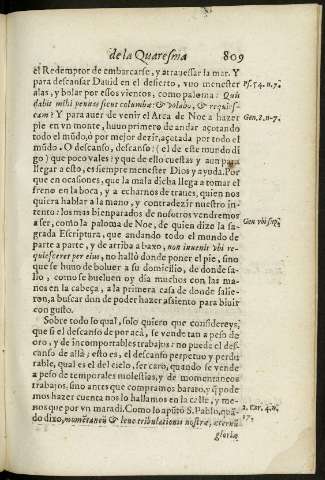 de la Quaresma 809
el Redemptor de embarcarse, y atrauessar la mar. Y
para descansar Dauid en el desierto, vuo menester
alas, y bolar por essos vientos, como paloma: Quis
dabit mihi pennas sicut columbæ: & volabo, & requies-
cam? Y para auer de venir el Arca de Noe a hazer
pie en vn monte, huuo primero de andar açotando
todo el mũdo, o por mejor dezir, açotada por todo el
mũdo. O descanso, descanso: (el de este mundo di
go) que poco vales: y que de ello cuestas y aun para
llegar a esto, es siempre menester Dios y ayuda. Por
que en ocasiones, que la mala dicha llega a tomar el
freno en la boca, y a echarnos de traues, quien nos
quiera hablar a la mano, y contradezir nuestro in-
tento: los mas bienparados de nosotros vendremos
a ser, como la paloma de Noe, de quien dize la sa-
grada Escriptura, que andando todo el mundo de
parte a parte, y de arriba a baxo, non inuenit vbi re-
quiesceret pes eius, no hallò donde poner el pie, sino
que se huuo de boluer a su domicilio, de donde sa-
lio, como se bueluen oy dia muchos con las ma-
nos en la cabeça, a la primera casa de donde salie-
ron, a buscar don de poder hazer assiento para biuir
con gusto.
Sobre todo lo qual, solo quiero que considereys,
que si el descanso de por acà, se vende tan a peso de
oro, y de incomportables trabajos: no puede el des-
canso de allà; esto es, el descanso perpetuo y perdu
rable, qual es el del cielo, ser caro, quando se vende
a peso de temporales molestias, y de momentaneos
trabajos, sino antes que compramos barato, y q̃ pode
mos hazer cuenta nos lo hallamos en la calle, y me-
nos que por vn marauedi. Como lo apũtò S. Pablo, quã-
do dixo, momẽtaneũ & leue tribulationis nostræ, æternũ
gloriæ
Ps. 54. n. 7.
Gen. 8. n. 7.
Gen vbi sup.
2. Cor. 4. n.
17.